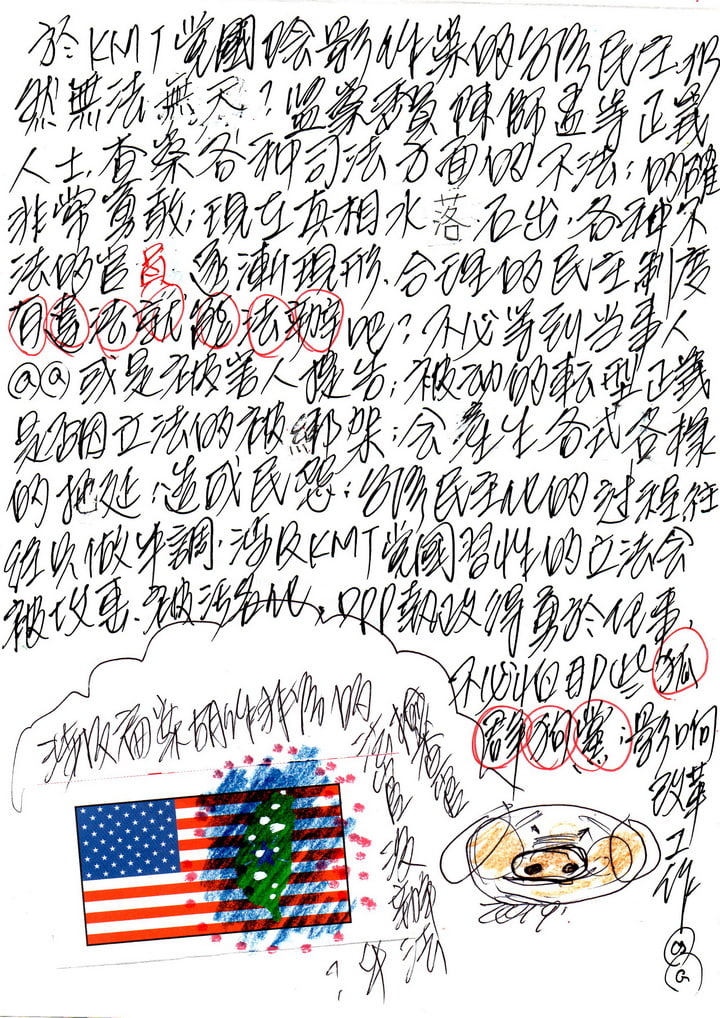 於KMT党國陰影作業的台湾民主,仍
然無法無天?监察委員陳師孟等正義
人士,查案各种司法方面的不法;的確
非常勇敢;現在真相水落石出,各种不
法的官員逐漸現形、合理的民主制度
有違法就能法辦吧?不必等到当事人
@@或是被害人提告;被动的転型正義
是否因立法的被綁架;会產生各式各樣
的拖延;造成民怨;台湾民主化的过程往
往只做半調,涉及KMT党國習性的立法会
被攻擊、被污名化、DPP執政得勇於任事,
不必計但那些狐
群狗黨;影响
改革
工作
@@
2019.